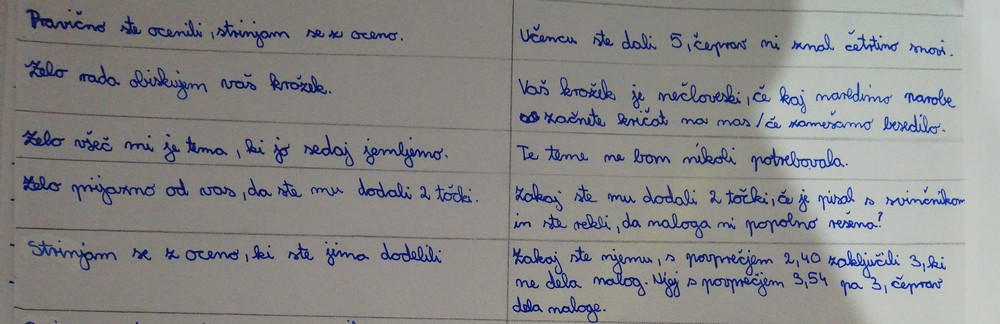 Pravično ste ocenili, strinjam se z oceno.
Učencu ste dali 5, čeprav ni znal četrtino snovi.
Zelo rada obiskujem vaš krožek.
Vaš krožek je nečloveski, če kaj naredimo narobe
začnete kričat na nas/če zamešamo besedilo.
Zelo všeč mi je tema, ki jo sedaj jemljemo.
Te teme ne bom nikoli potrebovala.
Zelo prijazno od vas, da ste mu dodali 2 točki.
Zakaj ste mu dodali 2 točki, če je pisal s svinčnikom
in ste rekli, da naloga ni popolno rešena?
Strinjam se z oceno, ki ste jima dodelili
Zakaj ste njemu, s povprečjem 2,40 zaključili 3, ki
ne dela nalog. Njej s povprečjem 3,54 pa 3, čeprav
dela naloge.